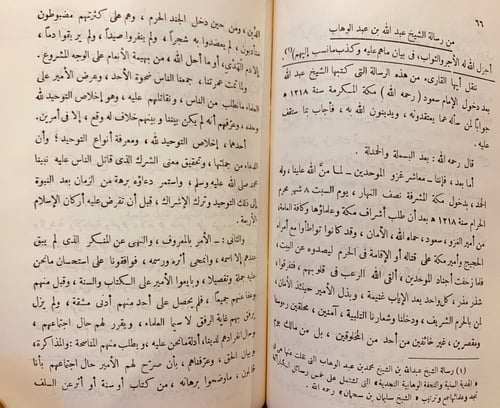 ٦٦
من رسالة الشيخ عبد الله بن عبد الوهاب
أجزل الله له الأجر والثواب، في بيان ماهم عليه وكذب مانسب إليهم (١)
ننقل أيها القارىء من هذه الرسالة التي كتبها الشيخ عبد الله
بعد دخول الإمام سعود (رحمه الله) مكة المكرمة سنة ١٢١٨ هـ
جواباً لمن سأله عما يعتقدونه، ويدينون الله به، فأجاب بما ستقف
عليه.
قال رحمه الله: بعد البسملة والحمدلة.
أما بعد، فإنا ـ معاشر غزو الموحدين، لما منَّ الله علينا، وله
الحمد، بدخول مكة المشرفة نصف النهار، يوم السبت ٨ شهر محرم
الحرام سنة ١٢١٨ هـ بعد أن طلب أشراف مكة وعلماؤها وكافة العامة،
من أمير الغزو، سعود، حماه الله، الأمان، وقد كانوا تواطأوا مع أمراء
الحجيج وأمير مكة على قتاله أو الإقامة في الحرم ليصدوه عن البيت،
فلما زحفت أجناد الموحدين، ألقى الله الرعب في قلوبهم، فتفرقوا،
شذر مذر، كل واحد يعد الإياب غنيمة، وبذل الأمير حينئذ الأمان،
لمن بالحرم الشريف، ودخلنا وشعارنا التلبية، آمنين، محلقين رءوسنا
ومقصرين، غير خائفين من أحد من المخلوقين، بل من مالك يوم
(١) رسالة الشيخ عبدالله بن الشيخ محمد بن عبد الوهاب التي نقلت منها هي في
الهدية السنية والتحفة الوهابية النجدية، التي تشتمل على خمس رسائل
الشيخ سليمان بن سحمان، رحمه الله.
الدين، ومن حين دخل الجند الحرم، وهم على كثرتهم مضبوطون
متأدبون، لم يعضدوا به شجراً، ولم ينفروا صيداً، ولم يريقوا دماً،
إلا دم الهدي، أو ما أحل الله من بهيمة الأنعام على الوجه المشروع.
ولما تمت عمرتنا، جمعنا الناس ضحوة الأحد، وعرض الأمير على
العلماء مانطلب من الناس، ونقاتلهم عليه، وهو إخلاص التوحيد لله
وحده، وعرَّفهم أنه لم يكن بيننا وبينهم خلاف له وقع، إلا في أمرين.
أحدهما، إخلاص التوحيد لله، ومعرفة أنواع التوحيد؛ وأن
الدعاء من جملتها، وتحقيق معنى الشرك الذي قاتل الناس عليه نبينا
محمد صلى الله عليه وسلم، واستمر دعاؤه برهة من الزمان بعد النبوة
إلى ذلك التوحيد وترك الإشراك، قبل أن تفرض عليه أركان الإسلام
الأربعة.
والثاني: ـ الأمر بالمعروف، والنهي عن المنكر الذي لم يبق
عندهم إلا اسمه، وانمحى أثره ورسمه، فوافقونا على استحسان مانحن
عليه جملة وتفصيلا، وبايعوا الأمير على الكتاب والسنة، وقبل منهم
وعفا عنهم جميعاً، فلم يحصل على أحد منهم أدنى مشقة، ولم يزل
يرفق بهم غاية الرفق لا سيما العلماء، ونقرر لهم حال اجتماعهم،
وحال انفرادهم لدينا، أدلة مانحن عليه، ونطلب منهم المناصحة والمذاكرة،
وبيان الحق، وعرَّفناهم، بأن صرَّح لهم الأمير حال اجتماعهم بأنا
قابلون، ماوضحوا برهانه، من كتاب أو سنة أو أثر عن السلف